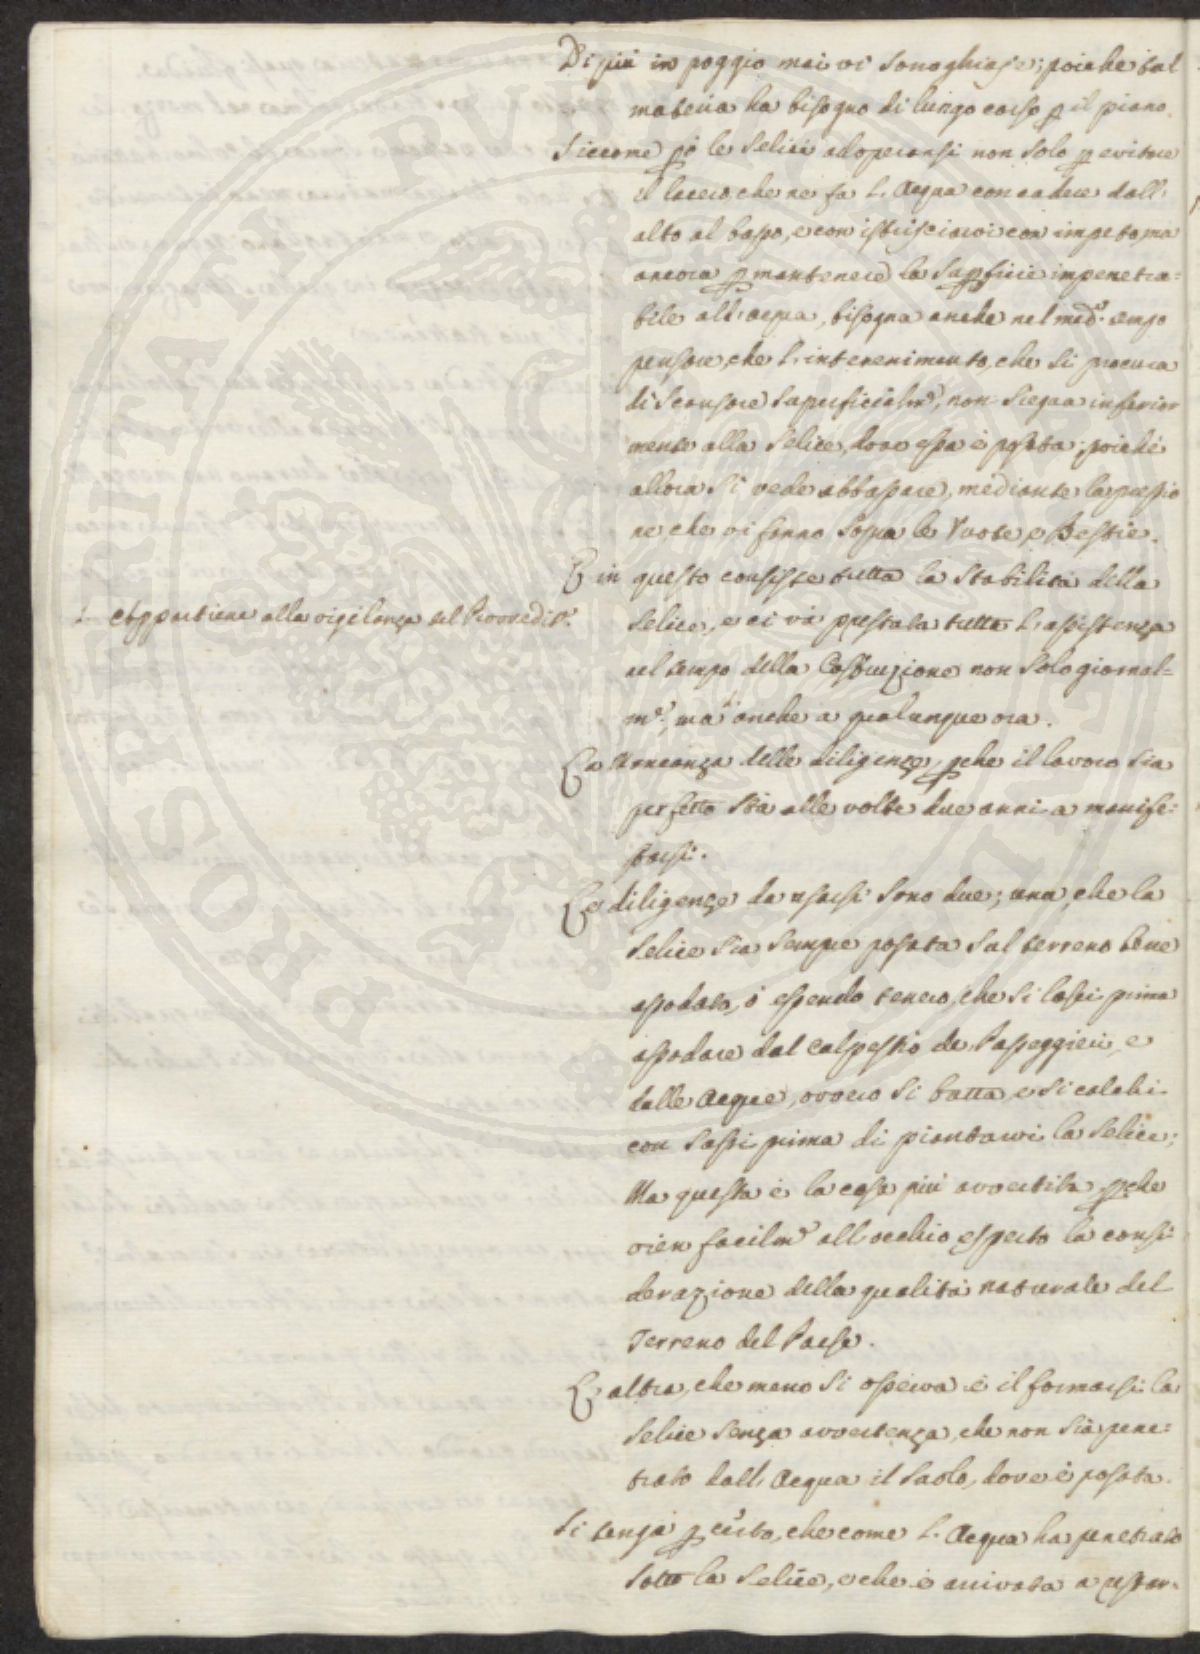 Di più in poggio mai vi sono ghiaje; poiche tal
materia ha bisogno di lungo corso p il piano
Siccome pò le Selici adoperansi non solo p evitare
il lacero, che ne fa l'Acqua con cadere dall'
alto al basso, e con istrisciarvi con impeto ma
ancora p mantenere la supficie impenetra=
bile all'acqua, bisogna anche nel medo. tempo
pensare, che l'intenenimento, che si procura
di scansare superficialme, non siegua inferior
mente alla Selice, dove essa è posata; poiché
allora si vede abbassare, mediante la pressio
ne, che vi fanno sopra le Ruote, e Bestie.
E in questo consiste tutta la stabilità della
1. Appartiene alla vigilanza del Provedite.
Selice, e ci và prestata tutta l'assistenza
nel tempo della Costruzione non solo giornal=
me. ma anche a qualunque ora.
La Mancanza delle diligenze, pche il lavoro sia
perfetto stà alle volte due anni a manife=
starsi.
Le diligenze da usarsi sono due; una, che la
Selice sia sempre posata sul terreno bene
assodato, ò essendo tenero, che si lasci prima
assodare dal calpestio de Passeggieri, e
dalle Acque, ovvero si batta, e si calchi
con sassi prima di piantarvi la Selice;
Ma questa è la cosa più avvertita pche
vien facilme all'occhio esperto la consi
derazione della qualità naturale del
Terreno del Paese.
L'altra, che meno si osserva è il formarsi la
Selice senza avvertenza, che non sia pene=
trato dall'Acqua il Suolo, dove è posata.
Si tenga p certo, che come l'Acqua ha penetrato
sotto la Selice, e che è arrivata a